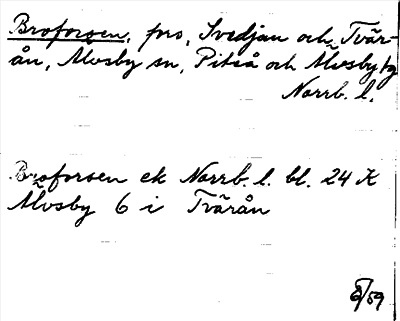 Broforsen, fors, Svedjan och Tvär-
ån, Älvsby sn, Piteå och Älvsby tg
Norrb. l.
Broforsen ek Norrb. l. bl. 24 K
Älvsby 6 i Tvärån
/59